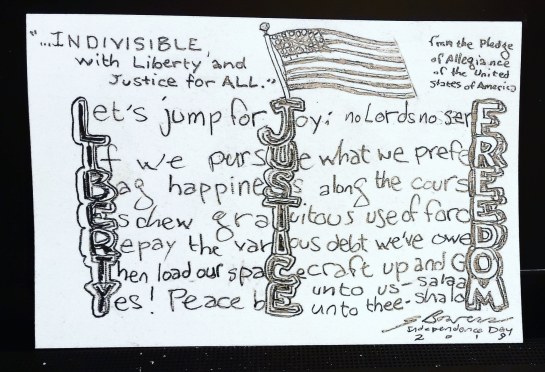 "...INDIVISIBLE,
with Liberty and
Justice for ALL."
from the Pledge
of Allegiance
of the United
States of America
Let's jump for Joy: no Lords no serF
If we pursUe what we prefeR
Bag happineSs along the coursE
Eschew graTuitous use of forcE
Repay the varIous debt we've oweD
Then load our spaCecraft up and GO
Yes! Peace bE unto us - salaaM
unto thee - shaloM
S Bowers
Independence Day
2019